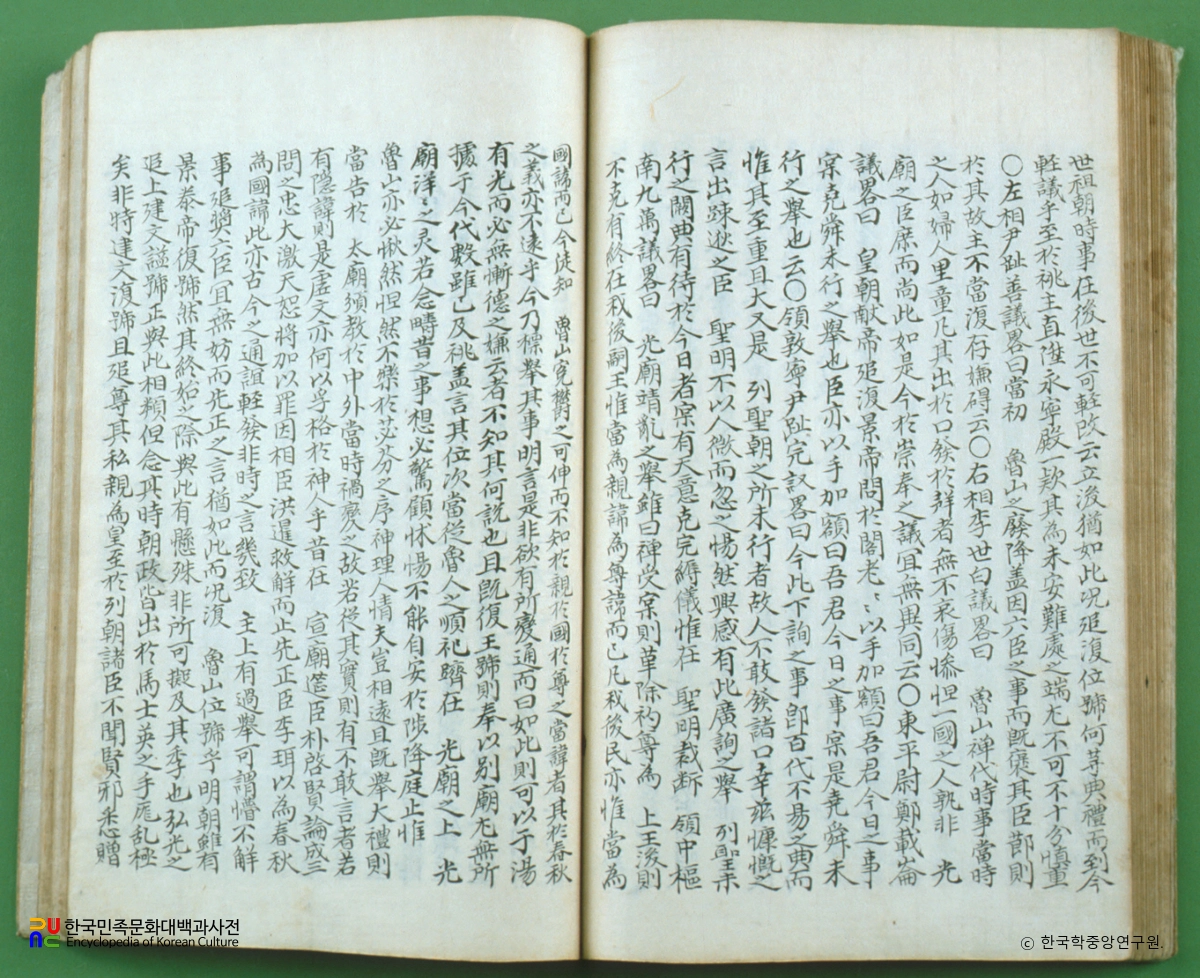 世祖朝時事在後世不可輕改云立浚猶如此况追復位號何等典禮而到今
輕議乎至於祧主直遷永寧殿一欵其為未安難處之端尤不可不十分愼重
〇左相尹趾善議畧曰當初 魯山之廢降盖因六臣之事而旣褒其臣節則
於其故主不當復存嫌碍云〇右相李世白議畧曰 魯山禪代時事當時
之人如婦人里童凡其出於口發於群者無不哀傷慘怛一國之人孰非 光
廟之臣庶而尚此如是今於崇奉之議宜無異同云〇東平尉鄭載崙
議畧曰 皇朝献帝追復景帝問於閣老〻以手加額曰吾君今日之事
宲克舜未行之擧也臣亦以手加額曰吾君今日之事宲是堯舜未
行之擧也云〇領敦寧尹趾完議畧曰今此下詢之事卽百代不易之典而
惟其至重且大又是 列聖朝之所未行者故人不敢發諸口幸玆慷慨之
言出踈逖之臣 聖明不以人微而忽之惕然興感有此廣詢之擧 列聖未
行之闕典有待於今日者宲有天意克完縟儀惟在 聖明裁断 領中樞
南九萬議畧曰 光廟靖亂之擧雖曰禪受宲則革除初尊為 上王後則
不克有終在我後嗣王惟當為親諱為尊諱而已凡我後民亦惟當為
國諱而已今徒知 魯山寃欝之可伸而不知於親於國於尊之當諱者其於春秋
之義亦不遠乎今乃標擧其事明言是非欲有所變通而曰如此則可以于湯
有光而必無慚德之嫌云者不知其何說也且旣復王號則奉以别廟尤無所
據于今代數雖已及祧盖言其位次當從魯人之順祀躋在 光廟之上 光
廟洋〻之灵若念疇昔之事想必驚顧怵惕不能自安於陟降庭止惟
魯山亦必愀然怛然不樂於苾芬之序神理人情夫豈相遠且旣擧大禮則
當告於 太廟頒教於中外當時禍變之故若從其實則有不敢言者若
有隠諱則是虛文亦何以孚格於神人乎昔在 宣廟筵臣朴啓賢論成三
問之忠大激天怒將加以罪因相臣洪暹救解而止先正臣李珥以為春秋
為國諱此亦古今之通誼輕發非時之言幾致 主上有過擧可謂懵不解
事追奬六臣宜無妨而先正之言猶如此而况復 魯山位號乎明朝雖有
景泰帝復號然其終始之際與此有懸殊非所可擬及其季也弘光之
追上建文謚號正與此相類但念其時朝政皆出於馬士英之手厖乱極
矣非特建文復號且追尊其私親為皇至於列朝諸臣不聞賢邪悉贈
한국민족문화대백과사전
Encyclopedia of Korean Culture
ⓒ 한국학중앙연구원.